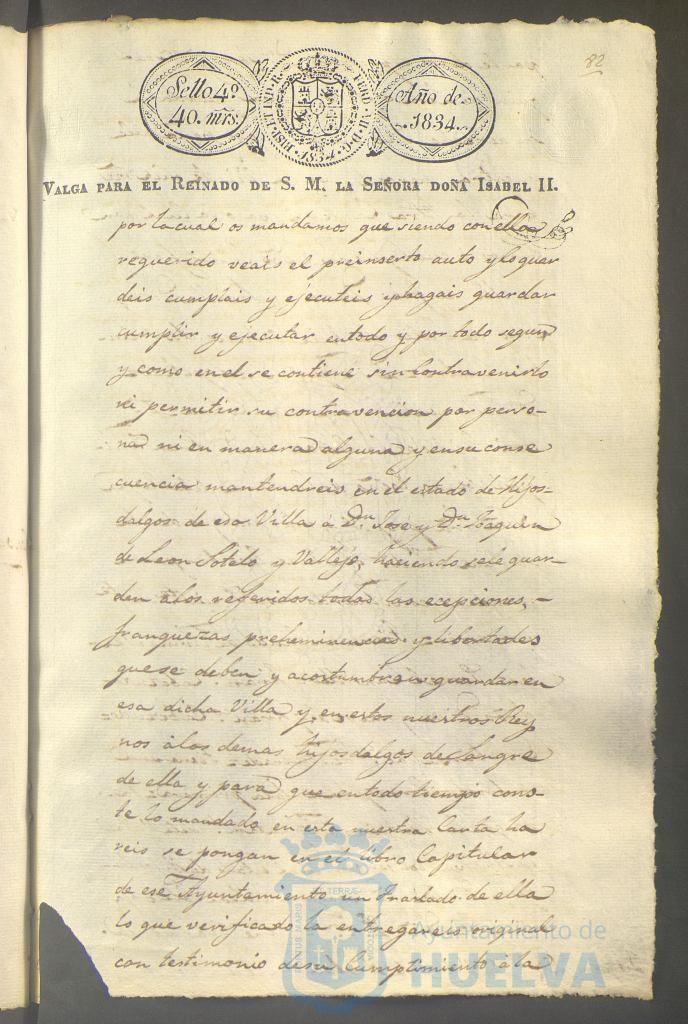 82
Sello 4º
40. mrs.
HISP. ET IND. R. FERD. VII. D. G.
1834
Año de
1834.
VALGA PARA EL REINADO DE S. M. LA SEÑORA DOÑA ISABEL II.
por la cual os mandamos que siendo con ella
requerido veais el preinserto auto y lo guar
deis cumplais y ejecuteis y hagais guardar
cumplir y ejecutar en todo y por todo segun
y como en el se contiene sin contravenirlo
ni permitir su contravencion por perso-
na ni en manera alguna y en su conse
cuencia mantendreis en el estado de Hijos-
dalgos de esa Villa á Dn. Jose y Dn. Joaquin
de Leon Sotelo y Vallejo, haciendo sele guar-
den a los referidos todas las ecepciones,-
franquezas preheminencias y libertades
que se deben y acostumbran guardar en
esa dicha Villa y en estos nuestros Rey
nos á los demas hijosdalgos de Sangre
de ella y para que en todo tiempo cons-
te lo mandado en esta nuestra Carta ha
reis se pongan en el libro Capitular
de ese Ayuntamiento un traslado de ella
lo que verificado la entregareis original
con testimonio de su cumplimiento á la
Ayuntamiento de
HUELVA